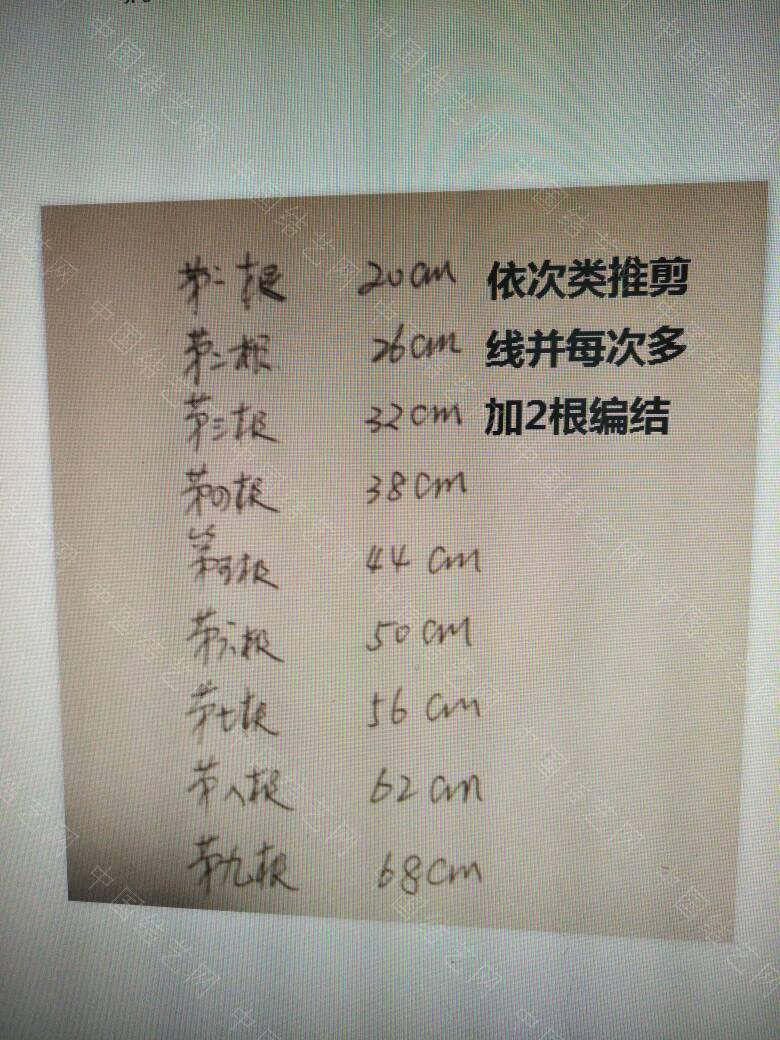 第一根 20cm 依次类推剪
第二根 26cm 线并每次多
第三根 32cm 加2根编结
第四根 38cm
第五根 44cm
第六根 50cm
第七根 56cm
第八根 62cm
第九根 68cm
中国结艺网